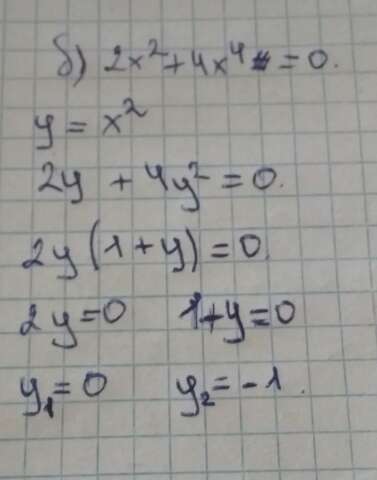 б) 2x² + 4x⁴ = 0.
y = x²
2y + 4y² = 0.
2y (1 + y) = 0
2y = 0 1 + y = 0
y₁ = 0 y₂ = -1.